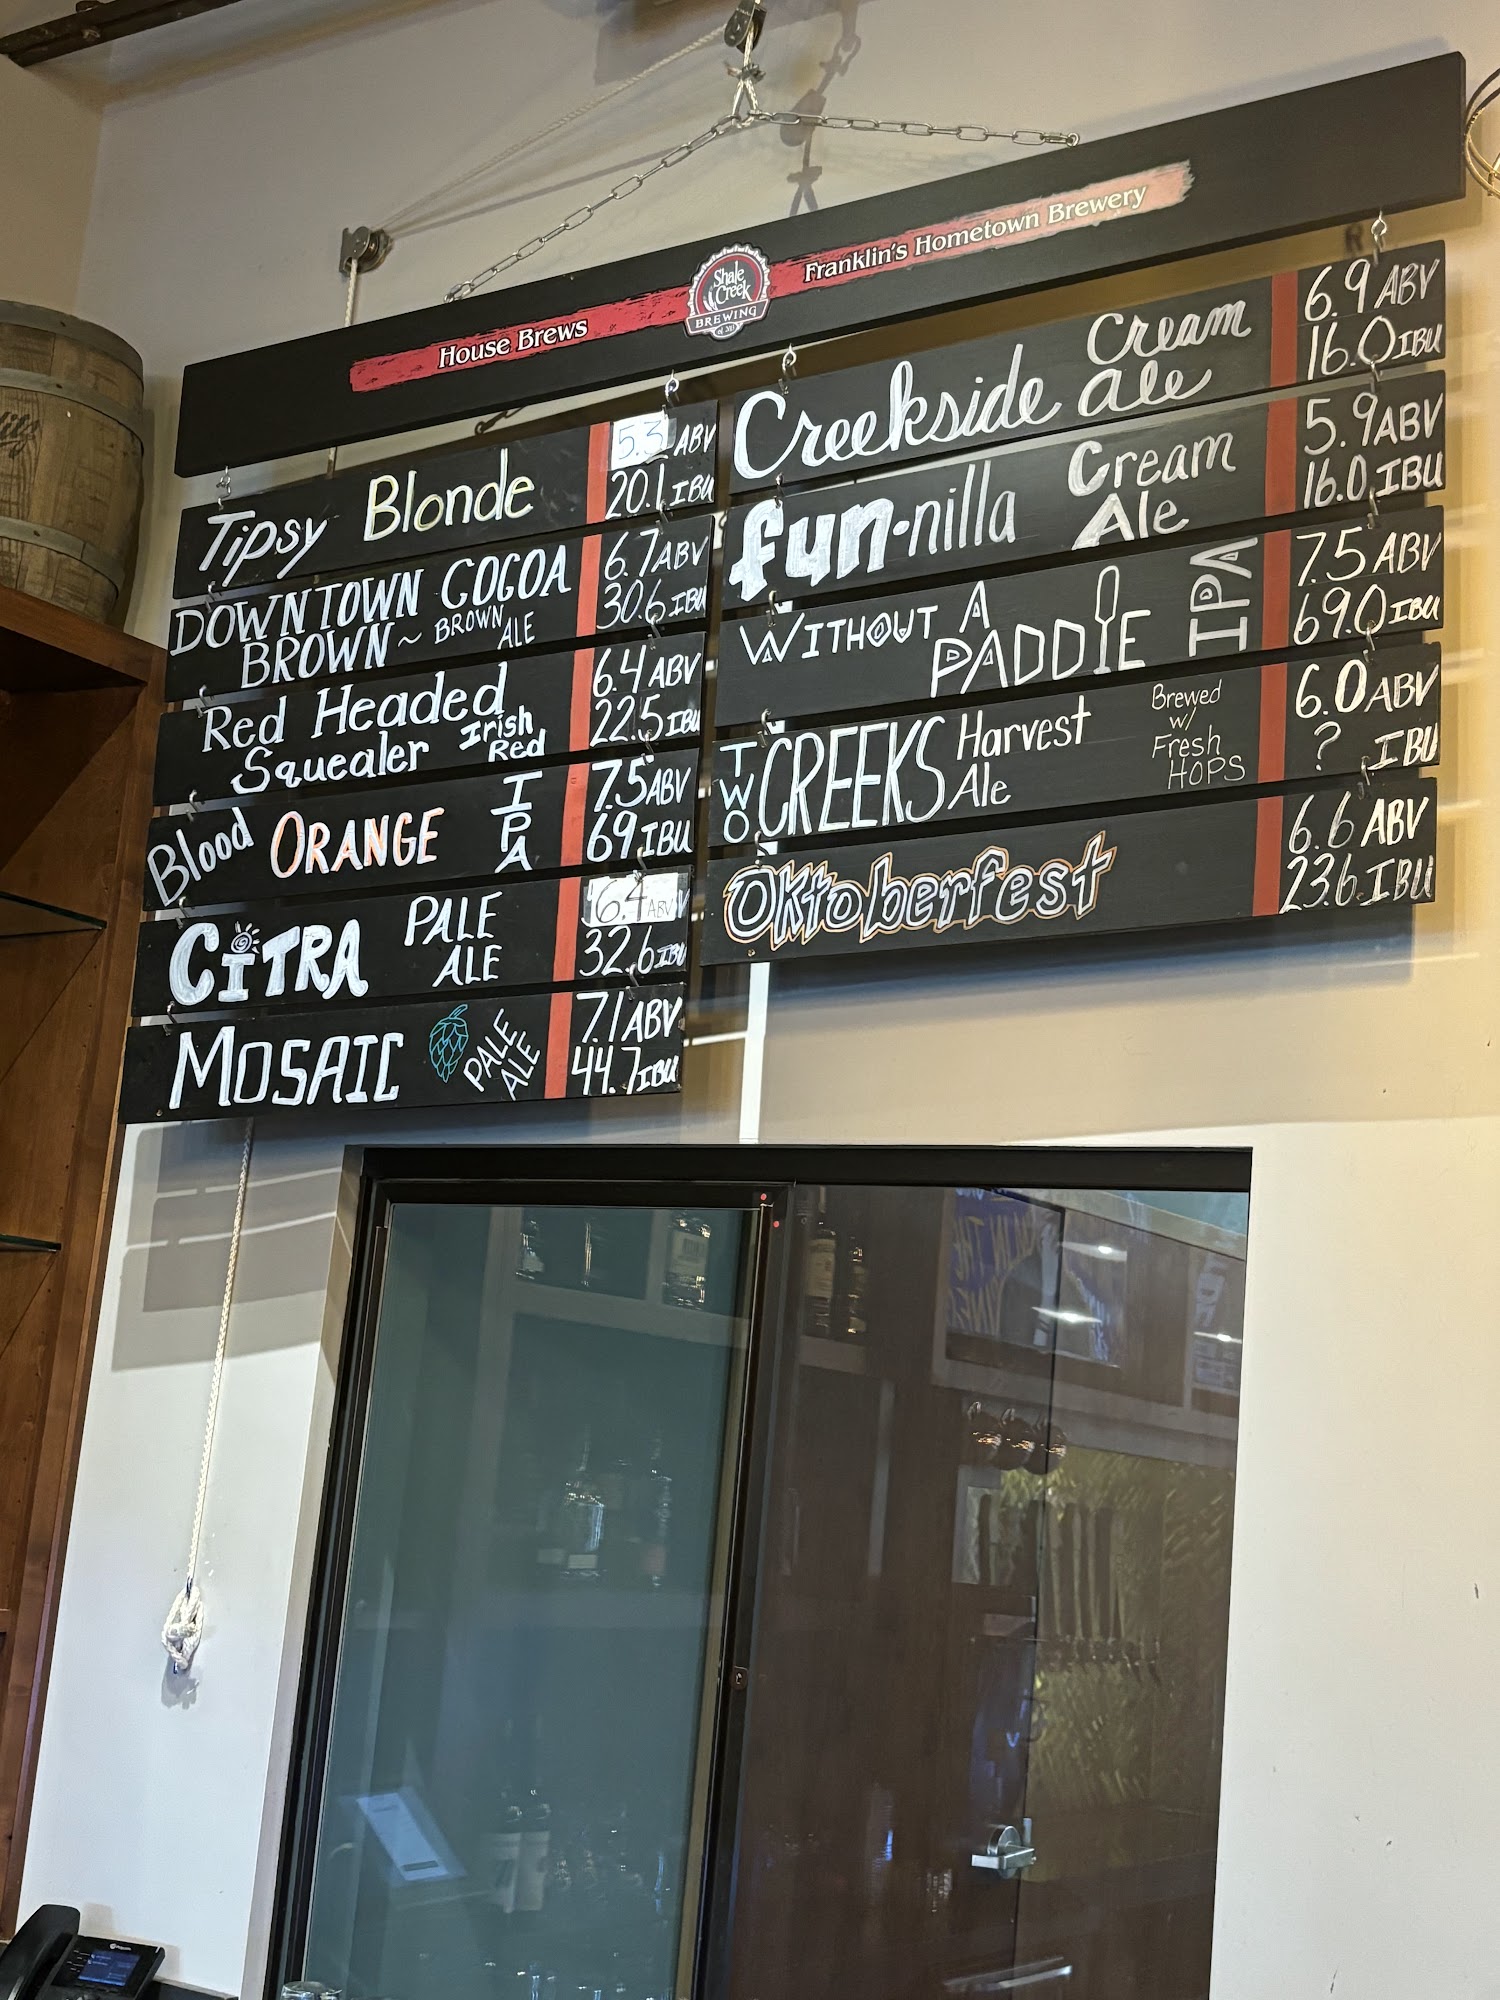 House Brews
Shale
Creek
BREWING
Franklin's Hometown Brewery
Tipsy Blonde
5.3 ABV
20.1 IBU
DOWNTOWN COCOA
BROWN ~ BROWN ALE
6.7 ABV
30.6 IBU
Red Headed
Squealer Irish Red
6.4 ABV
22.5 IBU
Blood ORANGE IPA
7.5 ABV
69 IBU
CiTRA PALE ALE
6.4 ABV
32.6 IBU
MOSAIC PALE ALE
7.1 ABV
44.7 IBU
Creekside Cream Ale
6.9 ABV
16.0 IBU
fun-nilla Cream Ale
5.9 ABV
16.0 IBU
WITHOUT A PADDlE IPA
7.5 ABV
69.0 IBU
TWO CREEKS Harvest Ale
Brewed
w/
Fresh
HOPS
6.0 ABV
? IBU
Oktoberfest
6.6 ABV
23.6 IBU